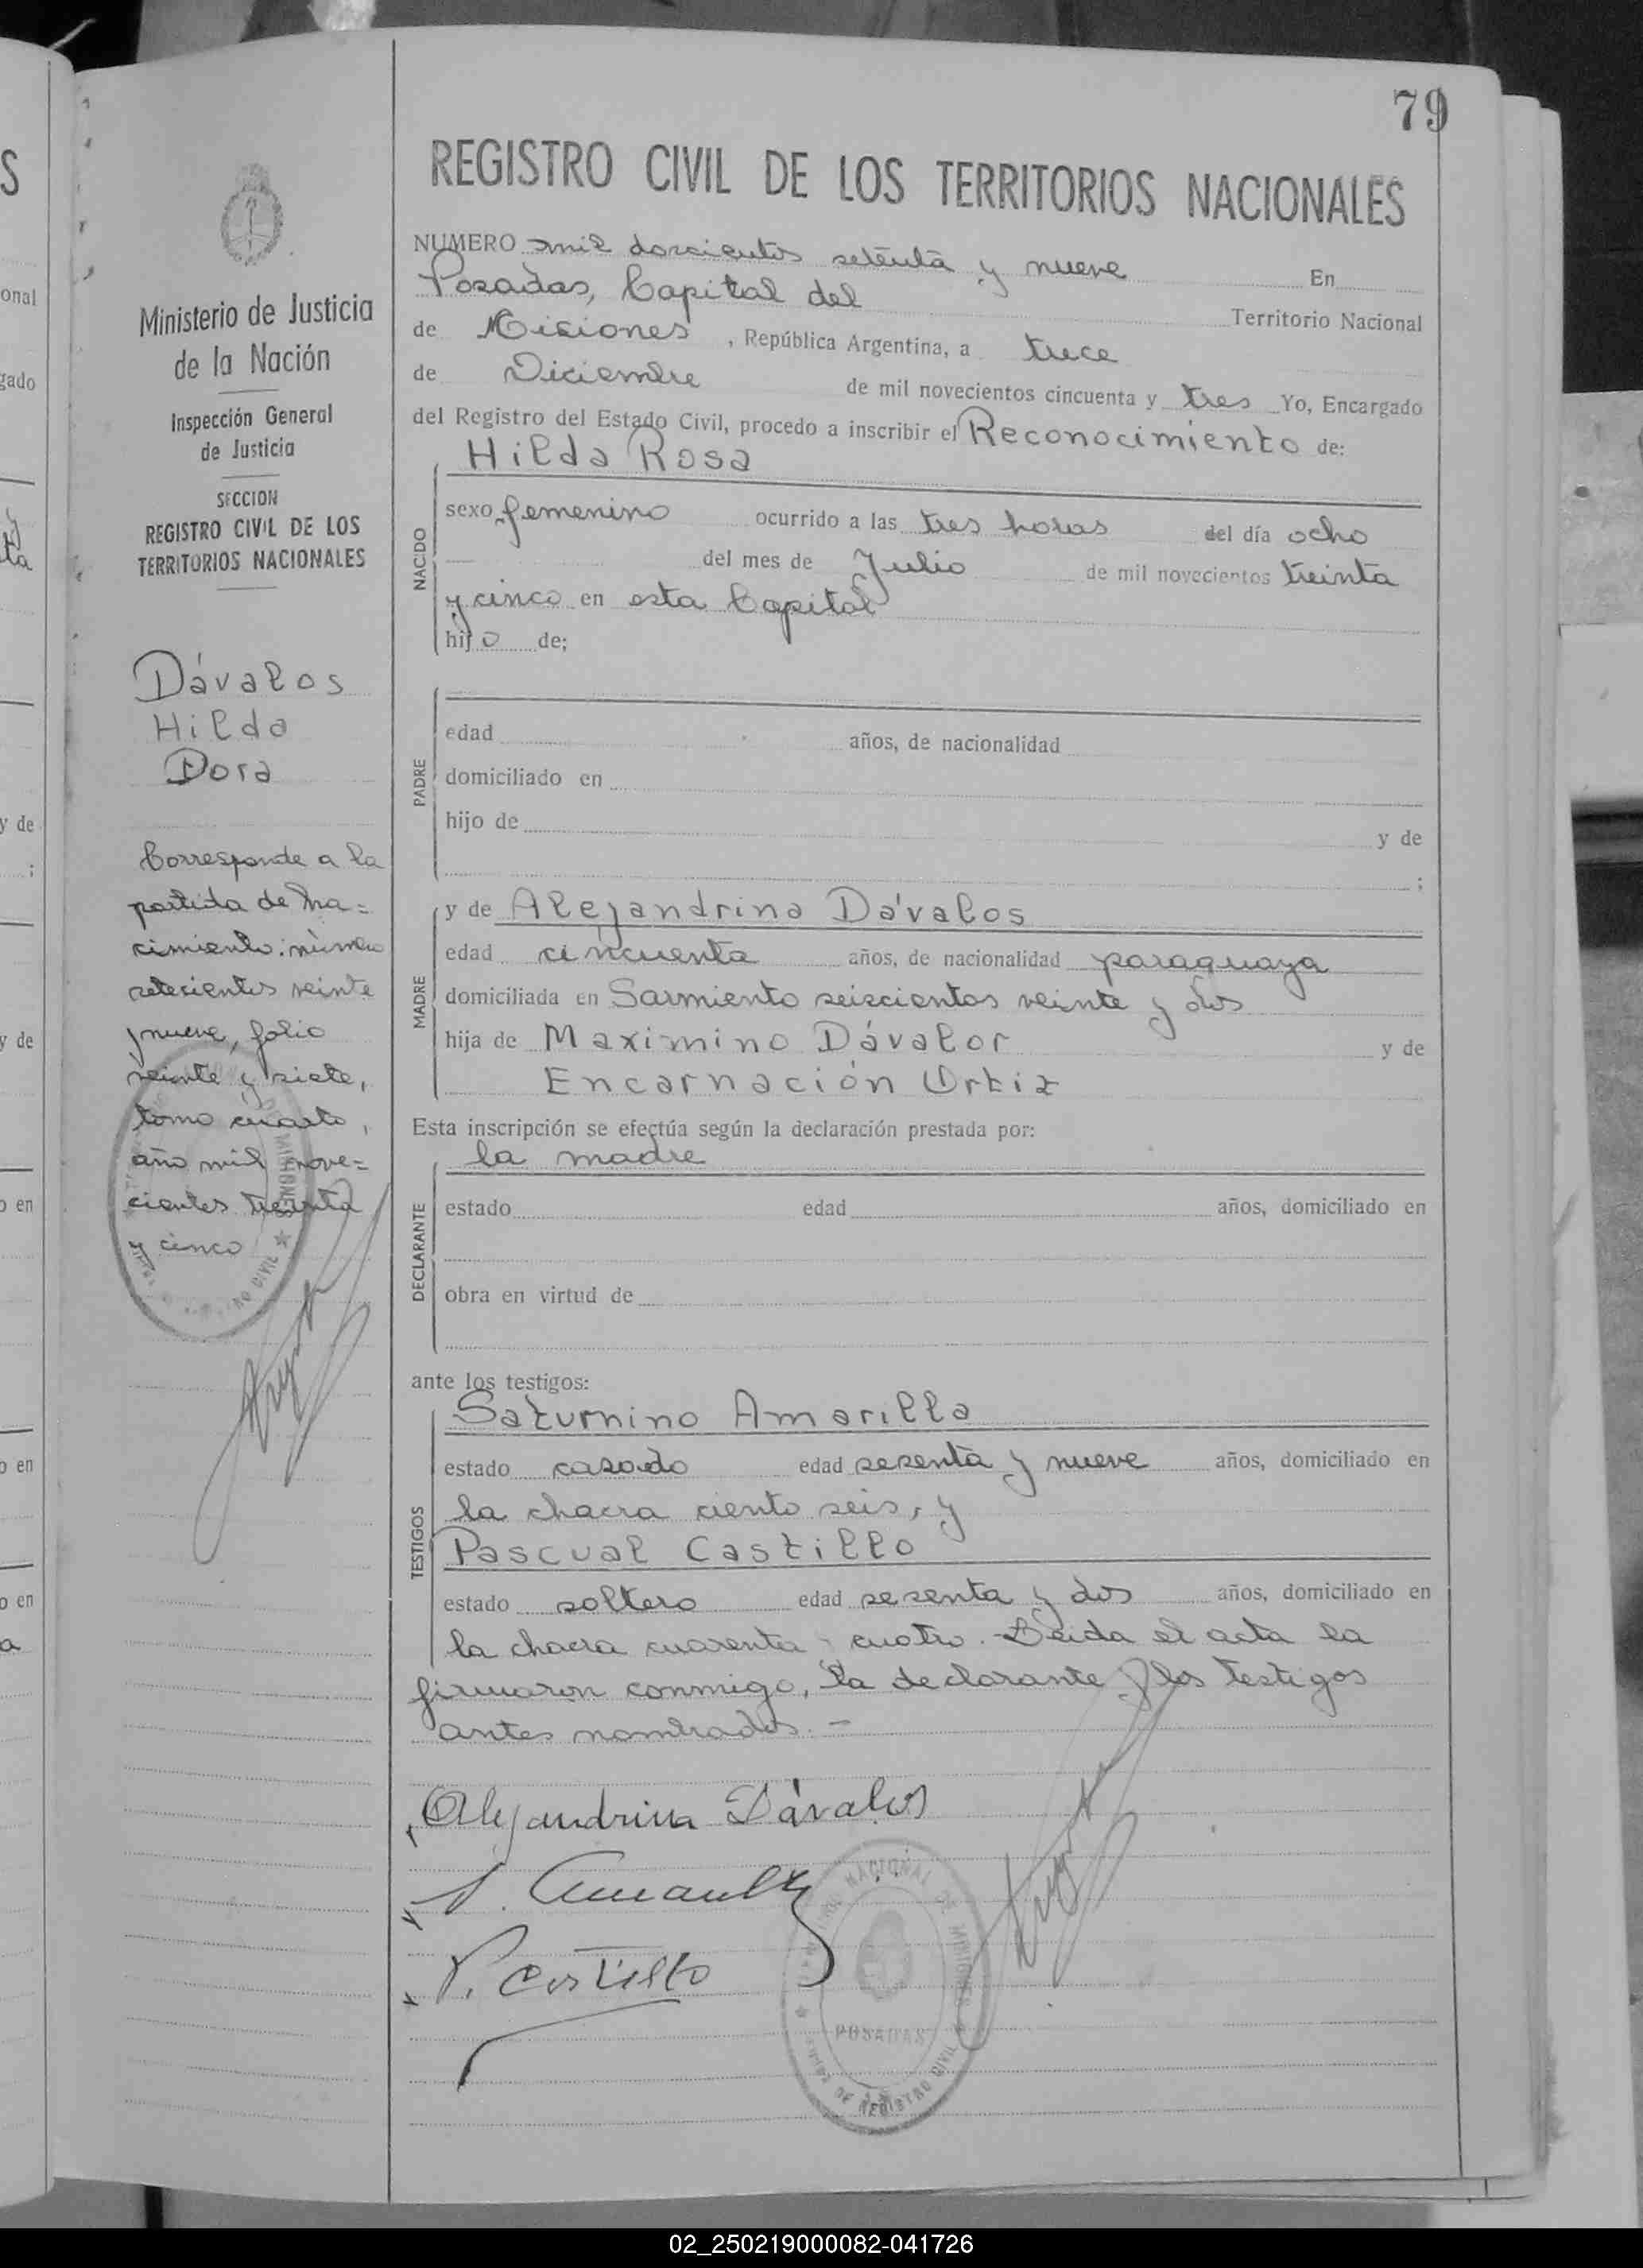 79
REGISTRO CIVIL DE LOS TERRITORIOS NACIONALES
NUMERO mil doscientos setenta y nueve En
Posadas, Capital del Territorio Nacional
de Misiones, República Argentina, a trece
de Diciembre de mil novecientos cincuenta y tres Yo, Encargado
del Registro del Estado Civil, procedo a inscribir el Reconocimiento de:
Hilda Rosa
NACIDO
sexo femenino ocurrido a las tres horas del día ocho
del mes de Julio de mil novecientos treinta
y cinco en esta Capital
hijo de;
PADRE
edad años, de nacionalidad
domiciliado en
hijo de y de
;
MADRE
y de Alejandrina Dávalos
edad cincuenta años, de nacionalidad paraguaya
domiciliada en Sarmiento seiscientos veinte y dos
hija de Maximino Dávalor y de
Encarnación Ortiz
Esta inscripción se efectúa según la declaración prestada por:
la madre
DECLARANTE
estado edad años, domiciliado en
obra en virtud de
ante los testigos:
TESTIGOS
Saturnino Amarilla
estado casado edad sesenta y nueve años, domiciliado en
la chacra ciento seis, y
Pascual Castillo
estado soltero edad sesenta y dos años, domiciliado en
la chacra cuarenta y cuatro. Leida el acta la
firmaron conmigo, la declarante y los testigos
antes nombrados. -
Alejandrina Dávalos
P. Castillo
NACIONAL DE MISIONES
POSADAS
DE REGISTRO CIVIL
Ministerio de Justicia
de la Nación
Inspección General
de Justicia
SECCION
REGISTRO CIVIL DE LOS
TERRITORIOS NACIONALES
Dávalos
Hilda
Dora
Corresponde a la
partida de na=
cimiento: número
setecientos veinte
y nueve, folio
veinte y siete,
tomo cuarto,
año mil nove=
cientos treinta
y cinco
MISIONES
S
onal
gado
y
ta
y de
;
y de
o en
o en
o en
a
02_250219000082-041726